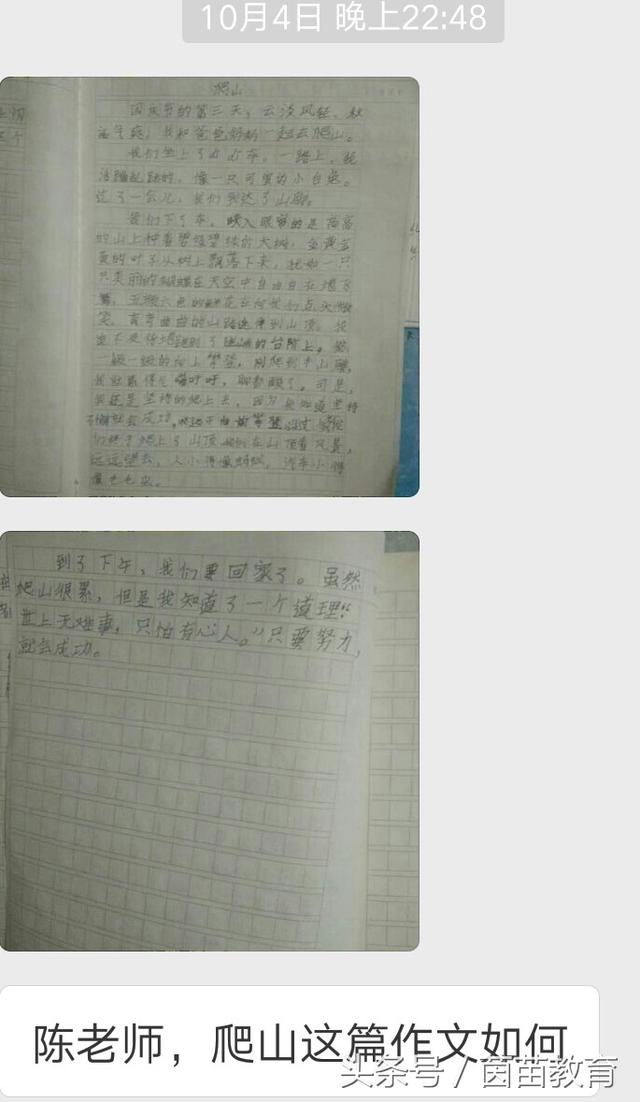 10月4日 晚上22:48
爬山
国庆节的第三天，云淡风轻，秋
高气爽，我和爸爸妈妈一起去爬山。
我们坐上了 车，一路上，我
活蹦乱跳的，像一只可爱的小白兔。
过了一会儿，我们到达了山脚。
我们下了车，映入眼帘的是高高
的山上种着碧绿碧绿的大树，金黄金
黄的叶子从树上飘落下来，犹如一只
只美丽的蝴蝶在天空中自由自在
五颜六色的鲜花在向我们点头微
笑，弯弯曲曲的山路连伸到山顶。我
的台阶上。
一级一级的向上攀登，刚爬到半山腰，
我就累得气喘吁吁，脚都酸了。可是，
我还是坚持的爬上去，因为我知道坚持
就会成功。
们终于爬上了山顶 在山顶看风景，
远远望去，人小得像蚂蚁，汽车小得
像七七虫。
到了下午，我们要回家了。虽然
爬山很累，但是我知道了一个道理“
世上无难事，只怕有心人。”只要努力，
就会成功。
陈老师，爬山这篇作文如何
头条号 / 茵苗教育